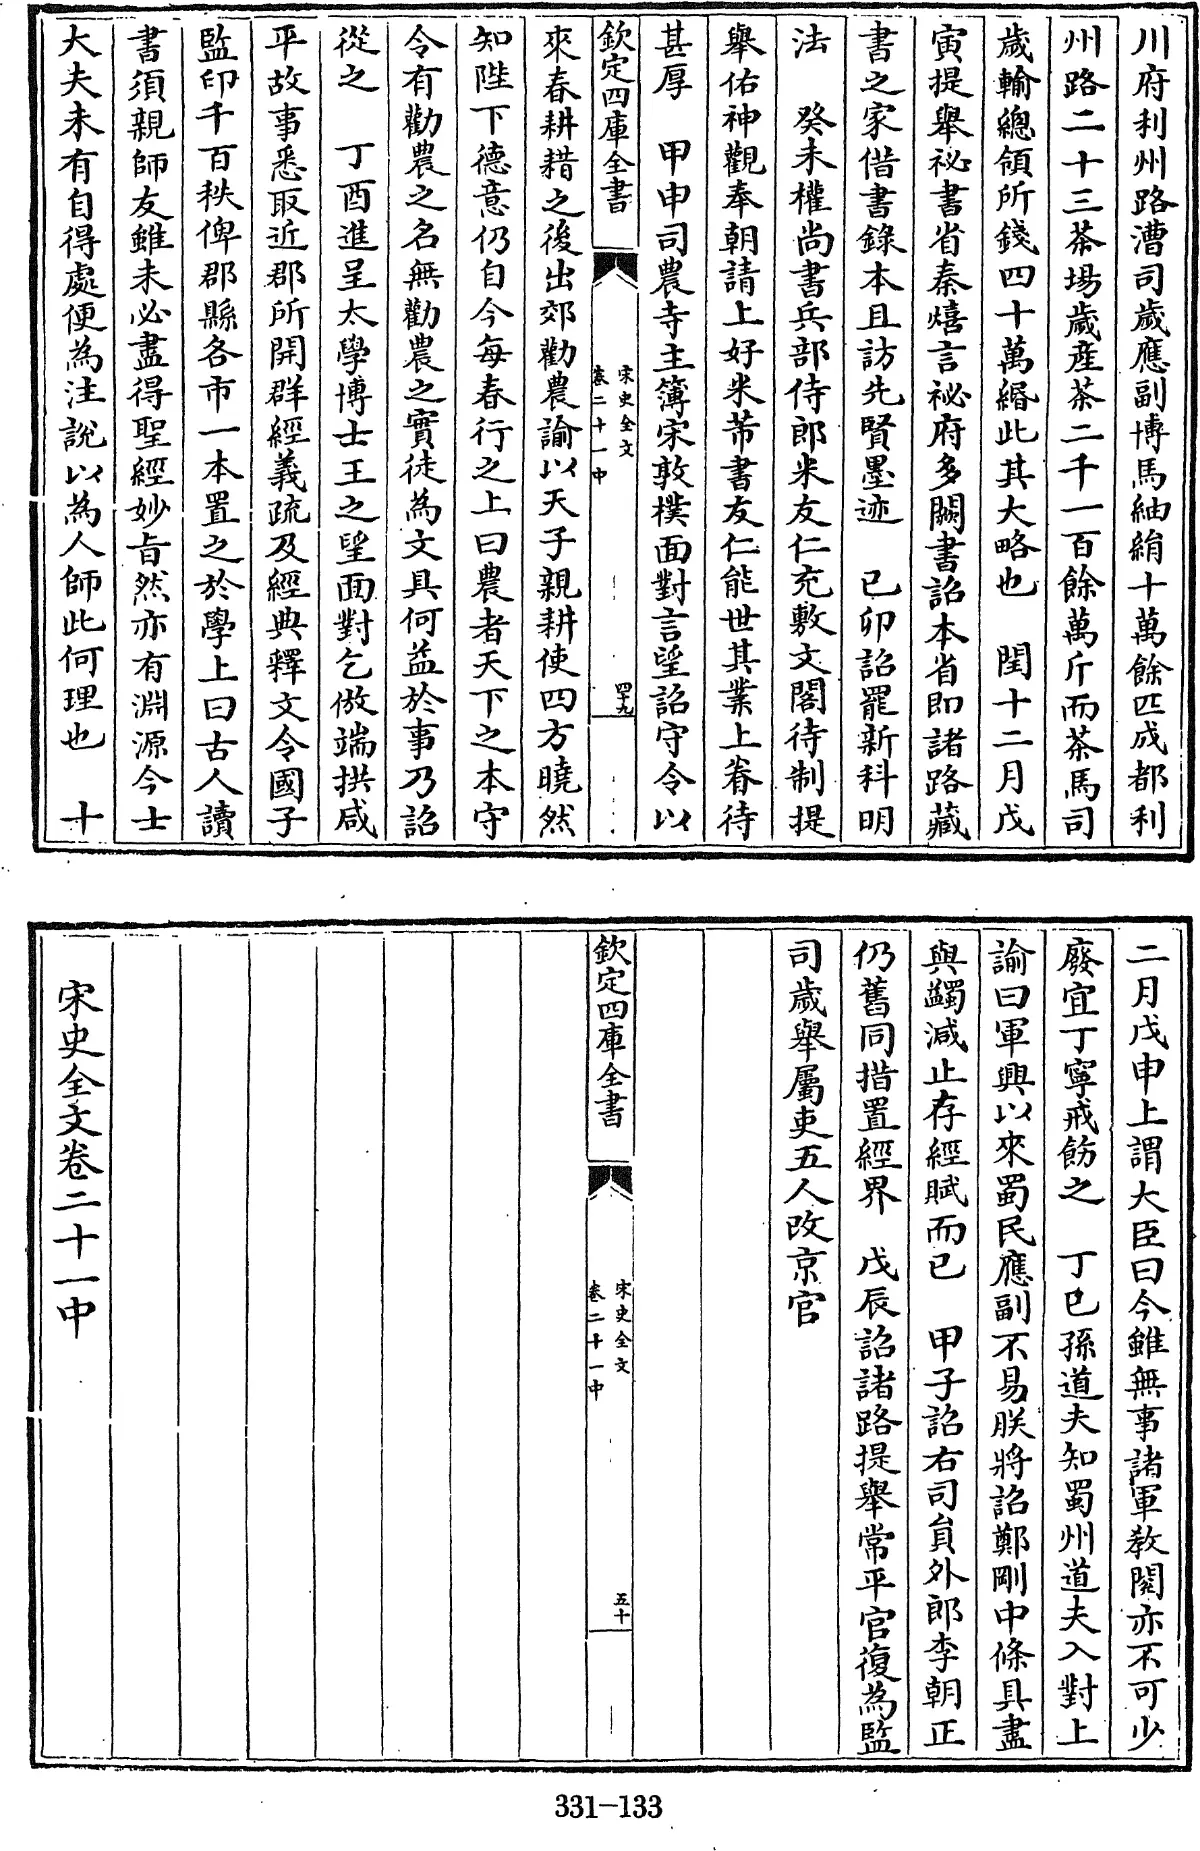 川府利州路漕司歲應副博馬紬絹十萬餘匹成都利
州路二十三茶場歲產茶二千一百餘萬斤而茶馬司
歲輸總領所錢四十萬緡此其大略也　閏十二月戊
寅提舉祕書省秦熺言祕府多闕書詔本省即諸路藏
書之家借書錄本且訪先賢墨迹　已卯詔罷新科明
法　癸未權尚書兵部侍郎米友仁充敷文閣待制提
舉佑神觀奉朝請上好米芾書友仁能世其業上眷待
甚厚　甲申司農寺主簿宋敦樸面對言望詔守令以
欽定四庫全書
宋史全文
卷二十一中
四十九
來春耕耤之後出郊勸農諭以天子親耕使四方曉然
知陛下德意仍自今每春行之上曰農者天下之本守
令有勸農之名無勸農之實徒為文具何益於事乃詔
從之　丁酉進呈太學博士王之望面對乞倣端拱咸
平故事悉取近郡所開群經義疏及經典釋文令國子
監印千百秩俾郡縣各市一本置之於學上曰古人讀
書須親師友雖未必盡得聖經妙旨然亦有淵源今士
大夫未有自得處便為注說以為人師此何理也　十
二月戊申上謂大臣曰今雖無事諸軍教閱亦不可少
廢宜丁寧戒飭之　丁巳孫道夫知蜀州道夫入對上
諭曰軍興以來蜀民應副不易朕將詔鄭剛中條具盡
與蠲減止存經賦而已　甲子詔右司員外郎李朝正
仍舊同措置經界　戊辰詔諸路提舉常平官復為監
司歲舉屬吏五人改京官
欽定四庫全書
宋史全文
卷二十一中
五十
宋史全文卷二十一中
331-133